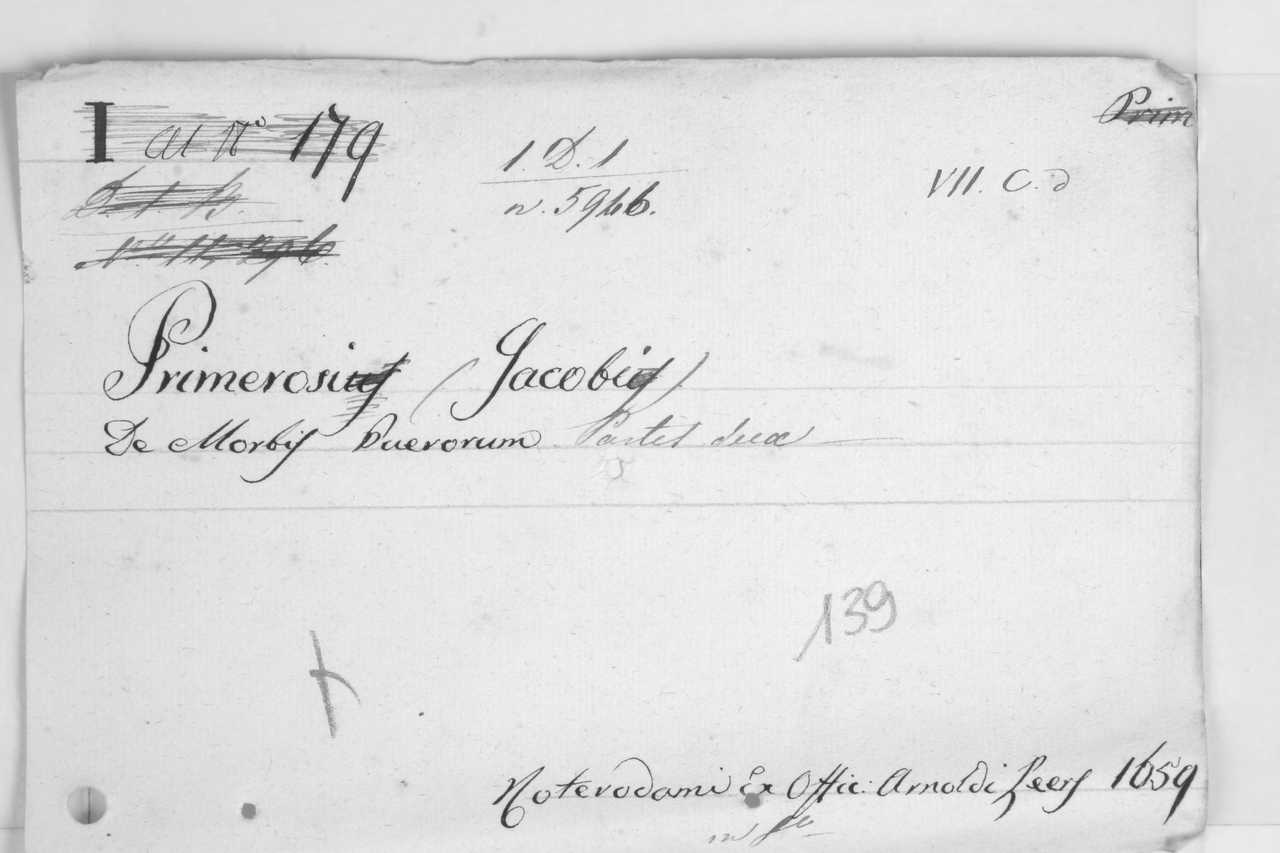 Prim
I al No 179
1. D. 1
n. 5946.
VII. C. d
Primerosii (Jacobi)
De Morbis Puerorum Partes duæ
139
Roterodami Ex Offic: Arnoldi Leers 1659